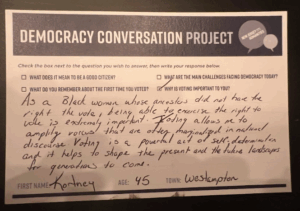 DEMOCRACY CONVERSATION PROJECT
Check the box next to the question you wish to answer, then write your response below.
WHAT DOES IT MEAN TO BE A GOOD CITIZEN?
WHAT ARE THE MAIN CHALLENGES FACING DEMOCRACY TODAY?
WHAT DO YOU REMEMBER ABOUT THE FIRST TIME YOU VOTED?
WHY IS VOTING IMPORTANT TO YOU?
As a Black woman whose ancestors did not have the
right to vote, being able to exercise the right to
vote is extremely important. Voting allows me to
amplify voices that are often marginalized in national
discourse. Voting is a powerful act of self determination
and it helps to shape the present and the future landscapes
for generations to come.
FIRST NAME: Kortney AGE: 45 TOWN: Westampton